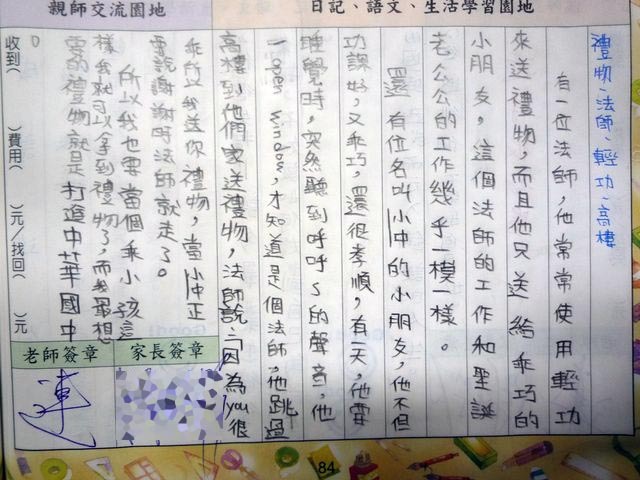 日記、語文、生活學習園地
禮物、法師、輕功、高樓
有一位法師，他常常使用輕功
來送禮物，而且他只送給乖巧的
小朋友，這個法師的工作和聖誕
老公公的工作幾乎一模一樣。
還有位名叫小中的小朋友，他不但
功課好，又乖巧，還很孝順，有一天，他要
睡覺時，突然聽到呼呼ㄎ的聲音，他
一open window，才知道是個法師，他跳過
高樓到他們家送禮物，法師說：「因為you很
親師交流園地
乖所以我送你禮物，當小中正
要說謝謝時法師就走了。
所以我也要當個乖小孩這
樣我就可以拿到禮物了，而我最想
要的禮物就是打造中華國中
。
收到（ ）費用（ ）元/找回（ ）元
家長簽章
老師簽章
連
84